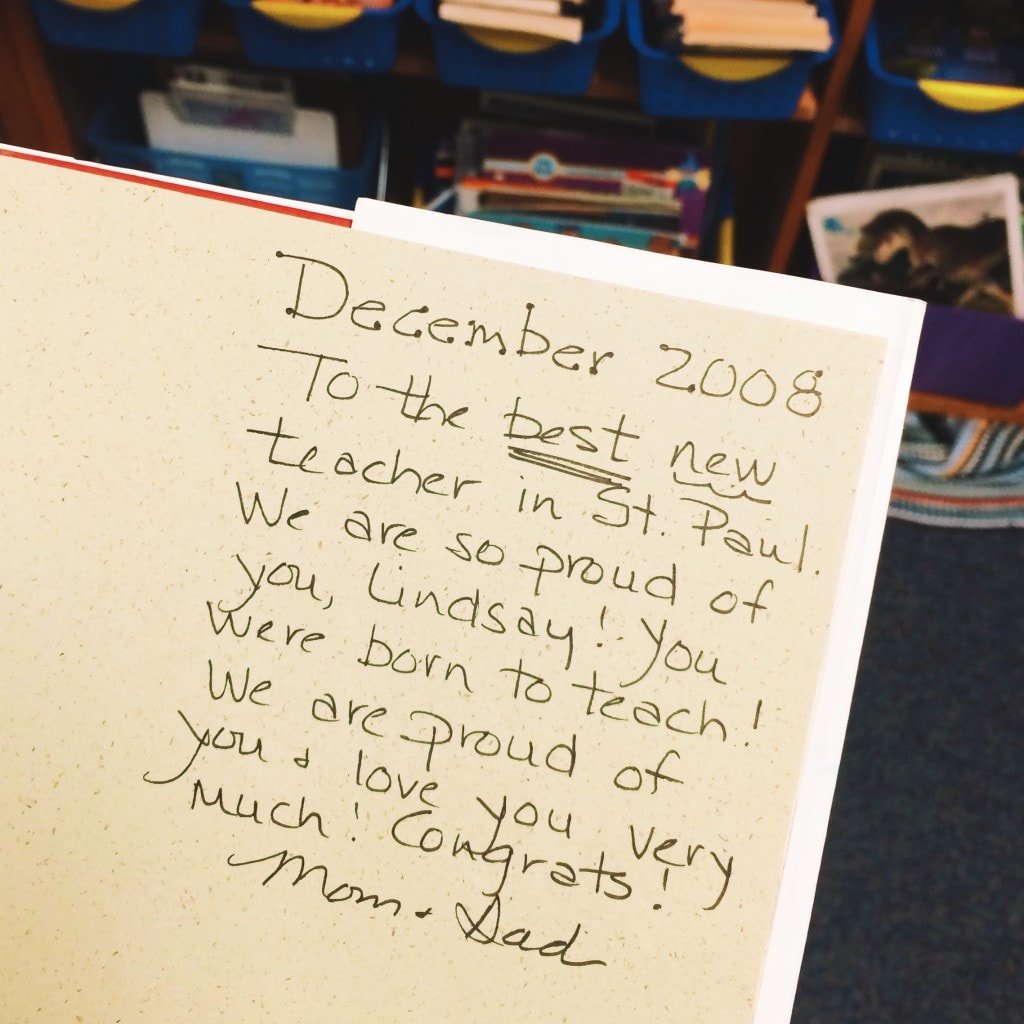 December 2008
To the best new
teacher in St. Paul.
We are so proud of
you, Lindsay! You
were born to teach!
We are proud of
you & love you very
much! Congrats!
Mom & Dad